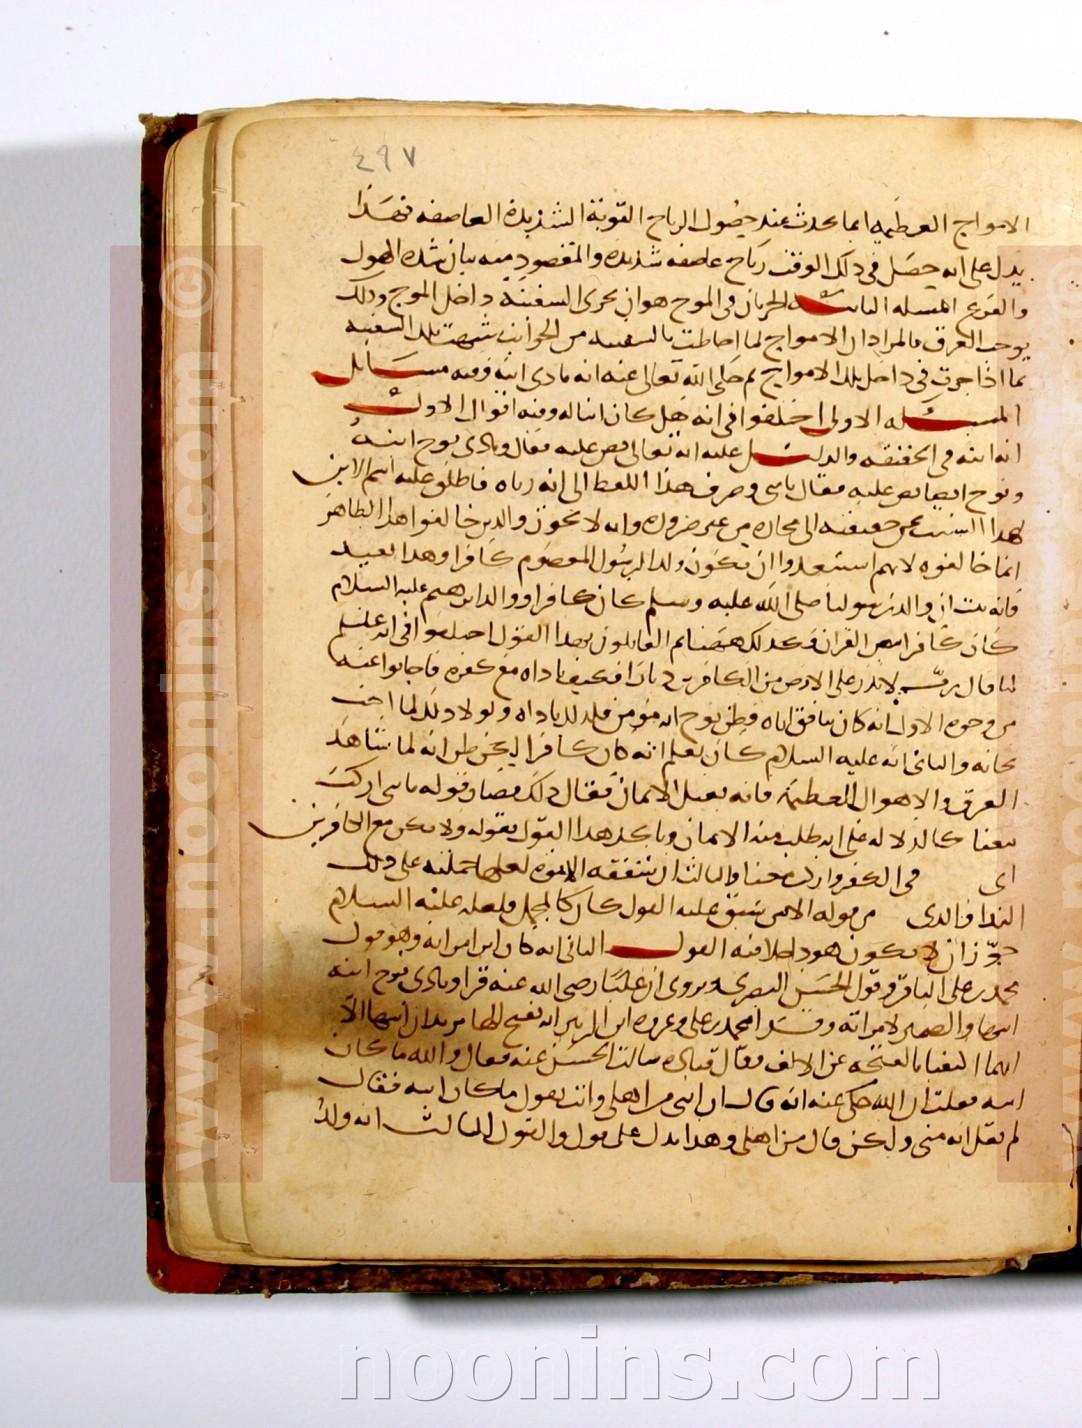 ٤٩٧
الامواج العظيمه انما يحدث عند حصول الرياح القوية الشديدة العاصفه فهذا
يدل على انه حصل في ذلك الوقت رياح عاصفه شديده والمقصود منه بيان شده الهول
والفزع المسله الثانيه الجريان في الموج هو ان يجرى السفينه داخل الموج وذلك
يوجب الغرق فالمراد ان الامواج لما احاطت بالسفينه من الجوانب شبهت تلك السفينه
بما اذا جرت في داخل تلك الامواج ثم حكى الله تعالى عنه انه نادى ابنه وفيه مسايل
المسله الاولى اختلفوا في انه هل كان ابنا له وفيه اقوال الاول
انه ابنه في الحقيقه والدليل عليه انه تعالى نص عليه فقال ونادى نوح ابنه
ونوح ايضا نص عليه فقال يابنى وصرف هذا اللفظ الى انه رباه فاطلق عليه اسم الابن
لهذا السبب عن حقيقته الى مجازه من غير ضروره وانه لا يجوز والذين خالفوا هذا الظاهر
انما خالفوه لانهم استبعدوا ان يكون ولد الرسول المعصوم كافرا وهذا بعيد
فانه ثبت ان والد رسولنا صلى الله عليه وسلم كان كافرا ووالد ابرهيم عليه السلام
كان كافرا بنص القران فكذلك ههنا ثم القايلون بهذا القول اختلفوا في انه عليه السلم
لما قال رب لا تذر على الارض من الكافرين ديارا فكيف ناداه مع كفره فاجابوا عنه
من وجوه الاول انه كان ينافق اباه فظن نوح انه مومن فلذلك ناداه ولولا ذلك لما احب
نجاته والثاني انه عليه السلام كان يعلم انه كان كافرا لكن ظن انه لما شاهد
الغرق والاهوال العظيمة فانه يقبل الايمان فقال ذلك فصار قوله يابنى اركب
معنا كالدلاله على انه طلب منه الايمان وتاكد هذا القول بقوله ولا تكن مع الكافرين
اى في الكفر واركب معنا والثالث ان شفقه الابوه لعلها حملته على ذلك
الندا والذى من قوله الا من سبق عليه القول كان كالمجمل فلعله عليه السلام
جوز ان لا يكون هو داخلا فيه القول الثاني انه كان ابن امراته وهو قول
محمد بن على الباقر وقول الحسن البصرى ويروى ان عليا رضى الله عنه قرا ونادى نوح ابنه
ابنها والضمير لامراته وقرا محمد بن على وعروه ابن الزبير ابنه بفتح الها يريدان ابنها الا
انهما اكتفيا بالفتحه عن الالف وقال قتاده سالت الحسن عنه فقال والله ما كان
ابنه فقلت ان الله حكى عنه انه قال ان ابنى من اهلى وانت تقول ما كان ابنه فقال
لم يقل انه منى ولكن قال من اهلى وهذا يدل على قول والقول الثالث انه ولد
www.noonins.com ©
www.noonins.com ©
noonins.com